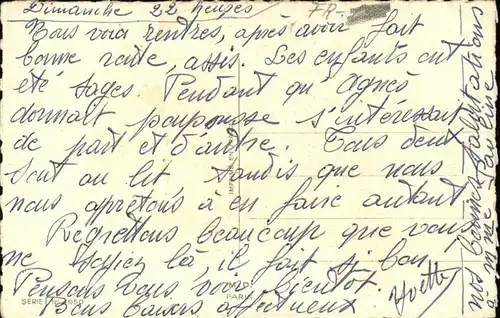 Dimanche 22 heures
FR-
Nous voici rentrés, après avoir fait
bonne route, assis. Les enfants ont
été sages. Pendant qu'Agnès
dormait s'intéressait
de part et d'autre. Tous deux
sont au lit tandis que nous
nous aprêtons à en faire autant
Regrettons beaucoup que vous
ne soyiez là, il fait si bon!
Pensons vous voir bientôt.
Bons baisers affectueux
Yvette
nos bonnes salutations
à mme Pauline
IMPRIMÉ EN
PARIS
SÉRIE